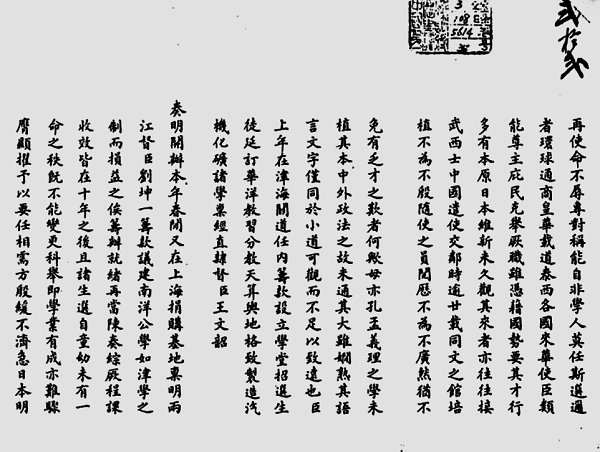 再使命不辱專對稱能自非學人莫任斯選邇
者環球通商皇華載道泰西各國來華使臣類
能尊主庇民克舉厥職雖憑藉國勢要其才行
多有本原日本維新未久觀其來者亦往往接
武西士中國遣使交鄰時逾廿載同文之館培
植不為不殷隨使之員閱歷不為不廣然猶不
免有乏才之歎者何歟毋亦孔孟義理之學未
植其本中外政法之故未通其大雖嫻熟其語
言文字僅同於小道可觀而不足以致遠也臣
上年在津海關道任內籌款設立學堂招選生
徒延訂華洋教習分教天算輿地格致製造汽
機化礦諸學稟經直隸督臣王文韶
奏明開辦本年春間又在上海捐購基地稟明兩
江督臣劉坤一籌款議建南洋公學如津學之
制而損益之俟籌辦就緒再當陳奏綜厥程課
收效皆在十年之後且諸生選自童幼未有一
命之秩既不能變更科舉即學業有成亦難驟
膺顯擢予以要任相需方殷緩不濟急日本明
3
108
5614